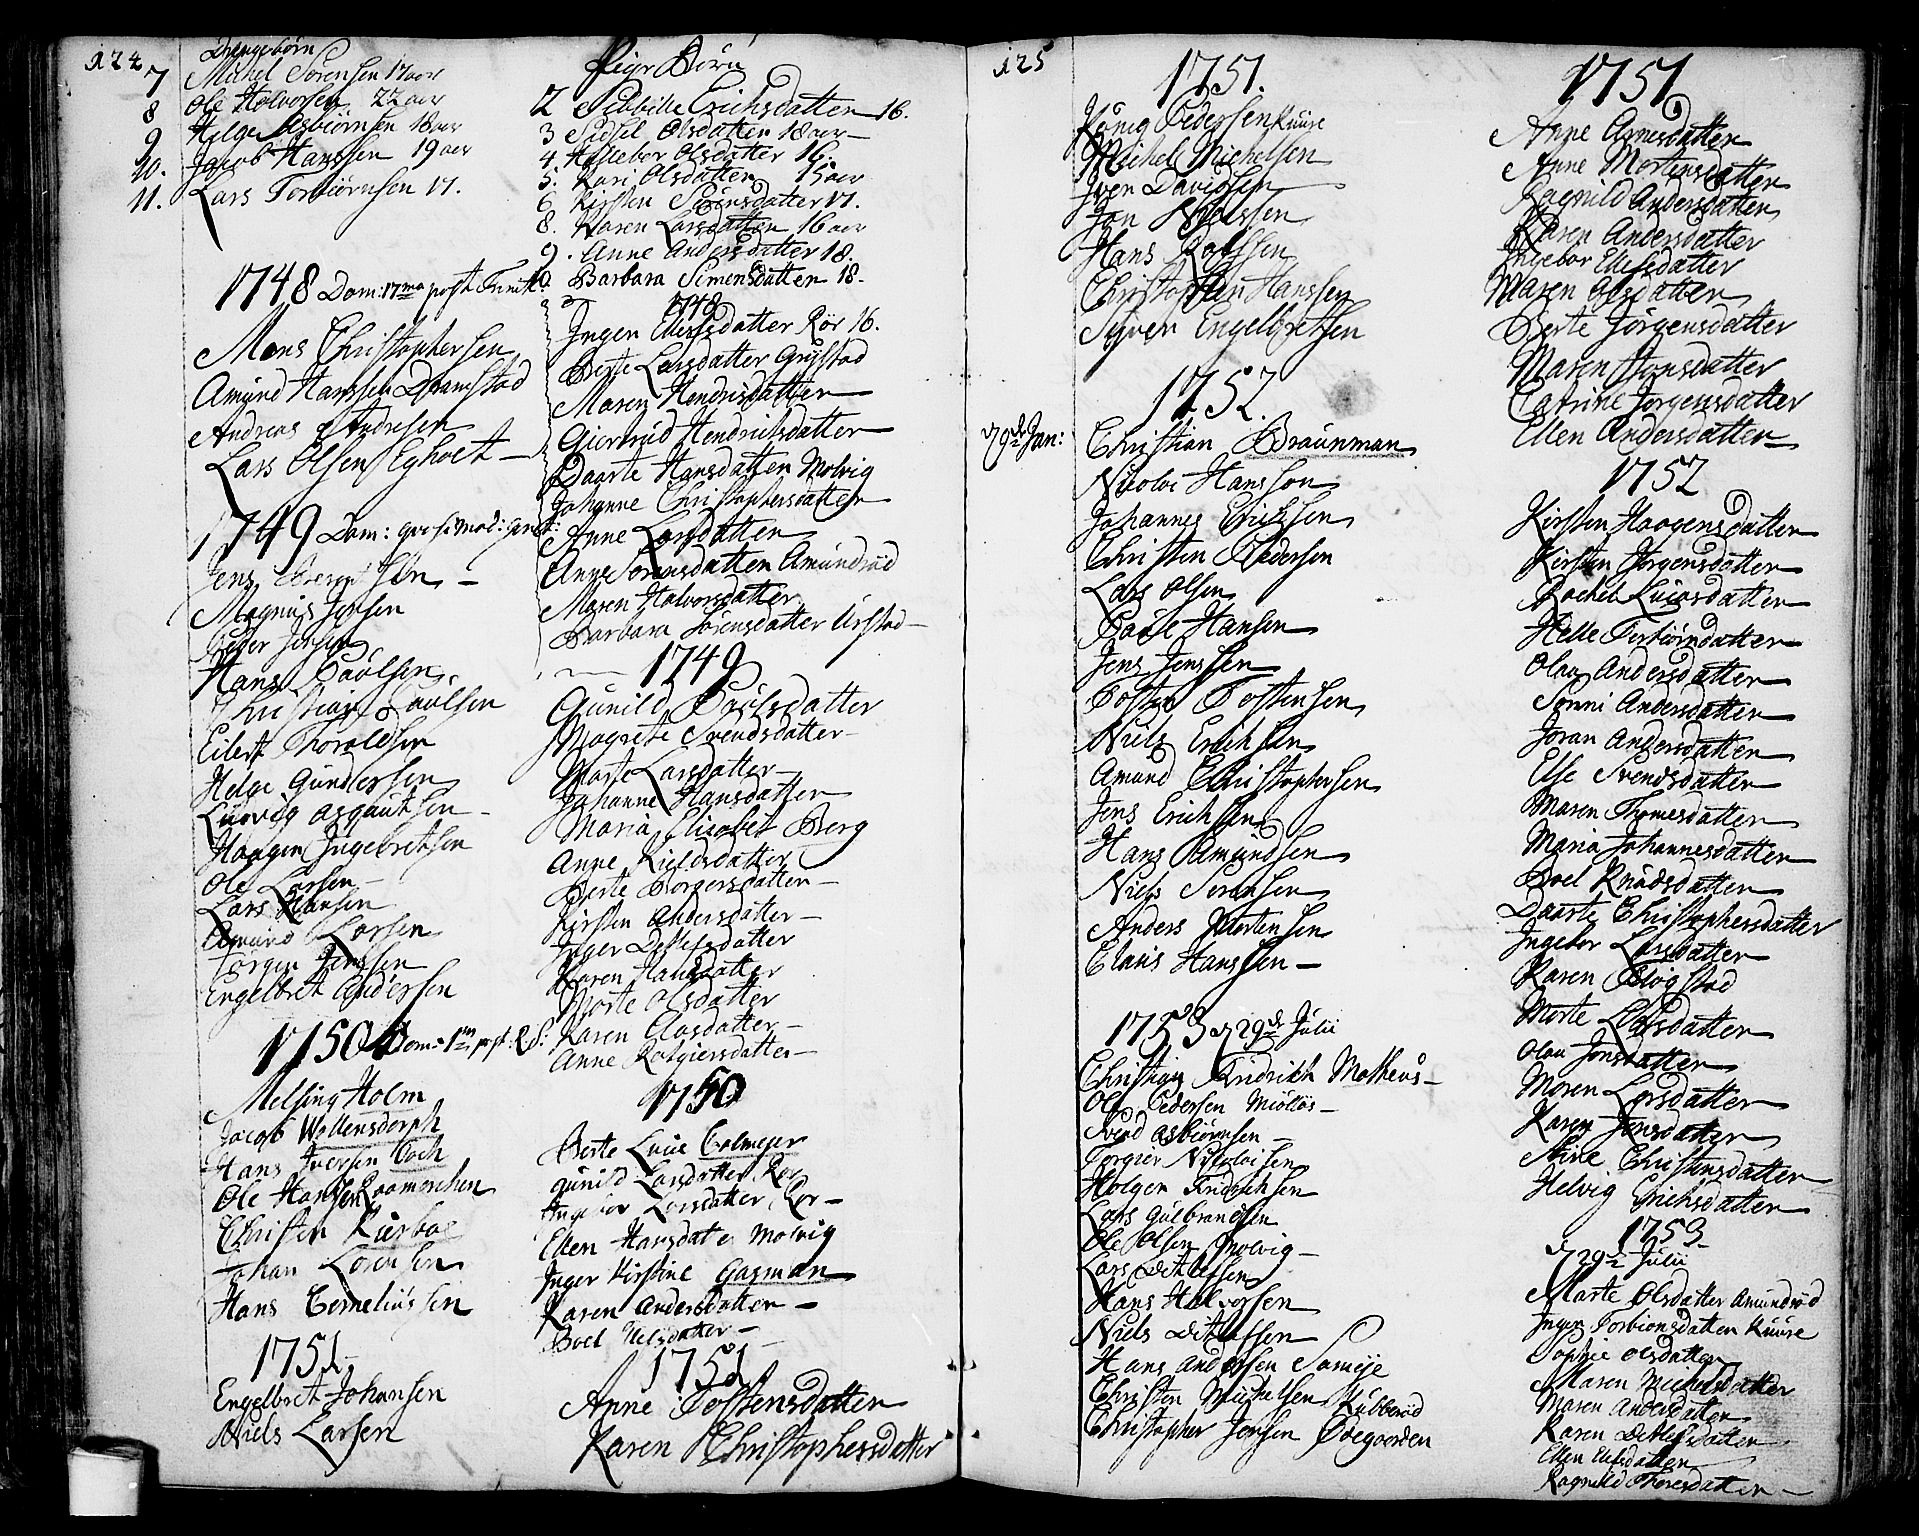 124
Drengebørn
7 Michel Sørensen 17 aar
8 Ole Halvorsen 22 aar
9 Helge Asbiørnsen 18 aar
10. Jacob Hanssen 19 aar
11. Lars Torbiørnsen 17.
1748 Dom: 17ma post Trinit:
Mons Christophersen
Amund Hanssen Dramstad
Andreas Andresen
Lars Olsen Egholt
1749 Dom: qvasimod: genit:
Jens Berentsen
Magnus Jensen
Peder Jensen
Hans Paulsen
Christian Paulsen
Eilert Thoroldsen
Helge Gundersen
Ludvig Asgautsen
Haagen Ingebretsen
Ole Larsen
Lars Hansen
Amund Larsen
Jørgen Jenssen
Engelbret Anderssen
1750 Dom: 1ma post
Melsing Holm
Jacob Woltensdorph
Hans Iversen Coch
Ole Hanssen Raamerchen
Christen Kierboe
Johan Lorensen
Hans Corneliussen
1751
Engelbret Johansen
Niels Larsen
Pige Børn
2 Sibbille Erichsdatter 16.
3 Sidsel Olsdatter 18 aar
4. Halleber Olsdatter 16.
5. Kari Olsdatter 15 aar
6 Kirsten Sørensdatter 17.
8. Karen Larsdatter 16 aar
9. Anne Andersdatter 18.
Barbara Simensdatter 18.
1748
Ingen Ellefsdatter Rør 16.
Berte Larsdatter Grystad
Maren Hendrisdatter
Giertrud Hendrichsdatter
Daarte Hansdatter Molvig
Johanne Christophersdatter
Anne Larsdatter
Anne Sørensdatter Amundrød
Maren Halvorsdatter
Barbara Sørensdatter Kirstad
1749
Gunild Poulsdatter
Magrete Svendsdatter
Marte Larsdatter
Johanne Hansdatter
Maria Elisabet Berg
Anne Kieldsdatter
Berte Borgersdatter
Kirsten Andersdatter
Inger Detlefsdatter
Karen Hansdatter
Marte Olsdatter
Karen Clausdatter
Anne Rolgiersdatter
1750
Berte Lucie Colmejer
Gunild Larsdatter Rør
Ingebor Larsdatter Rør
Ellen Hansdatter Molvig
Inger Kirstine Gasman
Karen Andersdatter
Boel Nilsdatter
1751
Anne Tostensdatter
Karen Christophersdatter
125
1751.
König Pedersen Kuure
Michel Michelsen
Iver Davidsen
Jan Nielssen
Hans Rolfsen
Christopher Hanssen
Syver Engelbretsen
1752.
d 9de Jan:
Christian Braunman
Nicolai Hansson
Johannes Erichsen
Christen Pedersen
Lars Olsen
Povle Hansen
Jens Jenssen
Tosten Tostensen
Niels Erichsen
Amund Christophersen
Jens Erichsen
Hans Amundsen
Niels Sørensen
Anders Mortensen
Claus Hanssen
1753 d 29de Julii
Christian Fridrich Matheus
Ole Pedersen Miølløs
Svend Asbiørnsen
Torgier Nicolaisen
Holgen Fridrichsen
Lars Gulbrandsen
Ole Olsen Molvig
Lars Detlefsen
Hans Halvorsen
Niels Detlefsen
Hans Andersen Sameje
Christen Michelsen Kubberød
Christopher Jensen Ødegaarden
1751
Anne Arnesdatter
Anne Mortensdatter
Ragnild Andersdatter
Karen Andersdatter
Ingebor Ellefsdatter
Maren Olsdatter
Berte Jørgensdatter
Maren Hansdatter
Catrine Jørgensdatter
Ellen Andersdatter
1752
Kirsten Haagensdatter
Kirsten Jørgensdatter
Rachel Lucasdatter
Helle Torbiørndatter
Olau Andersdatter
Sønni Andersdatter
Joran Andersdatter
Else Svendsdatter
Maren Thomesdatter
Maria Johannesdatter
Boel Knudsdatter
Daarte Christophersdatter
Ingebor Larsdatter
Karen Bløgstad
Marte Larsdatter
Olau Jonsdatter
Maren Larsdatter
Karen Jensdatter
Anne Christensdatter
Helvig Erichsdatter
1753
d 29de Julii
Marte Olsdatter Amundrød
Inger Torbionsdatter Kuure
Sophie Olsdatter
Maren Michelsdatter
Maren Andersdatter
Karen Detlefsdatter
Ellen Ellefsdatter
Ragnild Thoresdatter